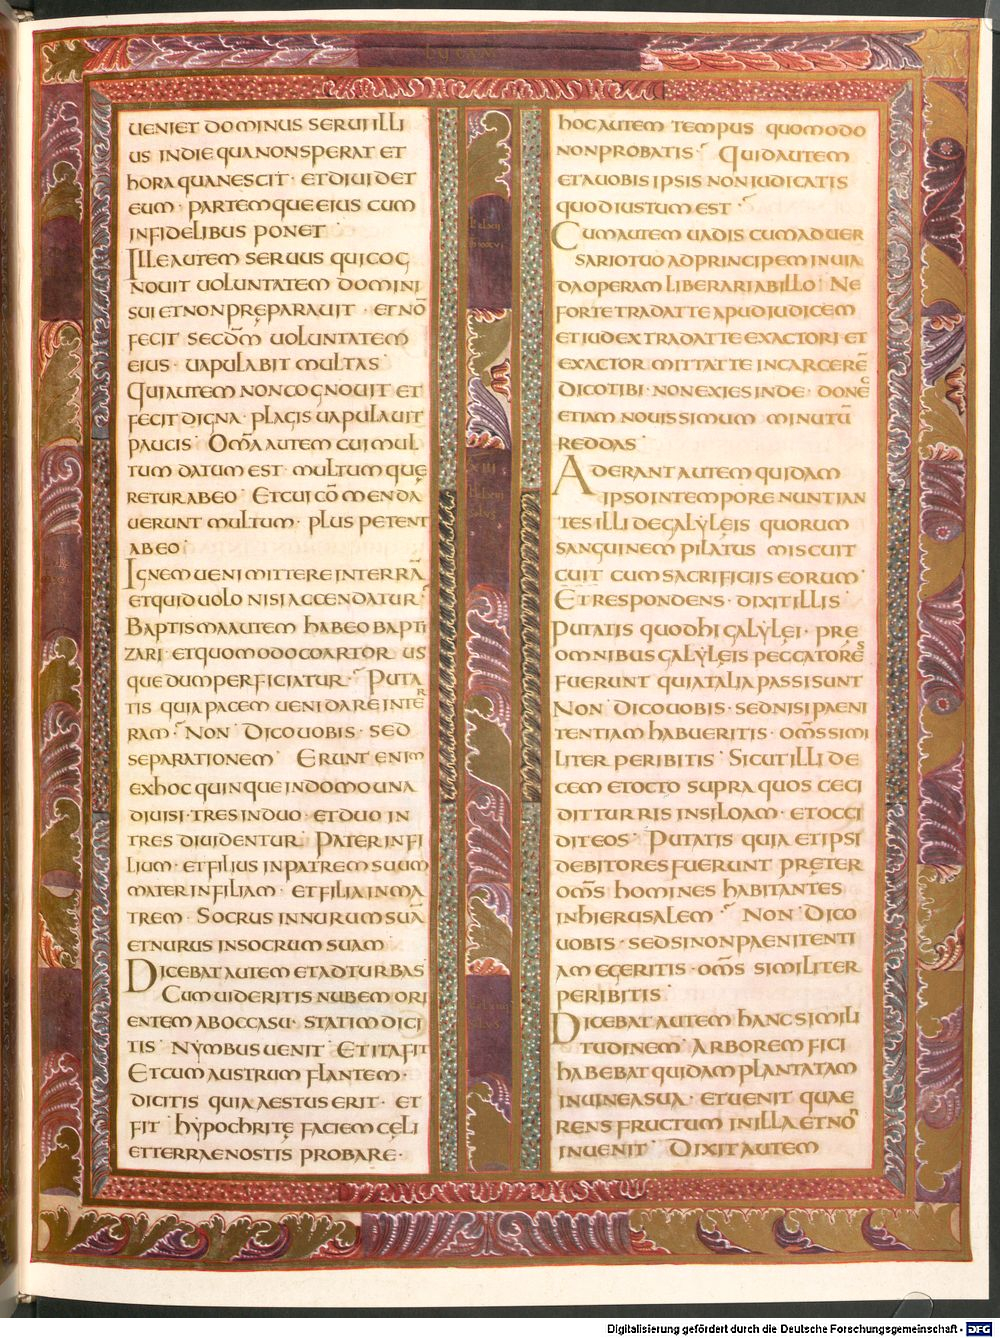 UENIET DOMINUS SERUI ILLI
US IN DIE QUA NON SPERAT ET
HORA QUA NESCIT · ET DIUIDET
EUM · PARTEMQUE EIUS CUM
INFIDELIBUS PONET
ILLE AUTEM SERUUS QUI COG
NOUIT UOLUNTATEM DOMINI
SUI ET NON PRĘPARAUIT · ET NŌ
FECIT SECDM̄ UOLUNTATEM
EIUS · UAPULABIT MULTAS
QUI AUTEM NON COGNOUIT ET
FECIT DIGNA · PLAGIS UAPULAUIT
PAUCIS · OM̄A AUTEM CUI MUL
TUM DATUM EST · MULTUM QUĘ
RETUR AB EO · ET CUI CŌMENDA
UERUNT MULTUM · PLUS PETENT
AB EO ·
IGNEM UENI MITTERE IN TERRĀ
ET QUID UOLO NISI ACCENDATUR
BAPTISMA AUTEM HABEO BAPTI
ZARI · ET QUOMODO COARTOR US
QUE DUM PERFICIATUR · PUTA
TIS QUIA PACEM UENI DARE IN TER
RAM · NON DICO UOBIS · SED
SEPARATIONEM · ERUNT ENIM
EX HOC QUINQUE IN DOMO UNA
DIUISI · TRES IN DUO · ET DUO IN
TRES DIUIDENTUR · PATER IN FI
LIUM · ET FILIUS IN PATREM SUUM
MATER IN FILIAM · ET FILIA IN MA
TREM · SOCRUS IN NURUM SUĀ
ET NURUS IN SOCRUM SUAM ·
DICEBAT AUTEM ET AD TURBAS
CUM UIDERITIS NUBEM ORI
ENTEM AB OCCASU · STATIM DICI
TIS · NYMBUS UENIT · ET ITA FIT
ET CUM AUSTRUM FLANTEM ·
DICITIS QUIA AESTUS ERIT · ET
FIT · HYPOCHRITĘ FACIEM CĘLI
ET TERRAE NOSTIS PROBARE ·
HOC AUTEM TEMPUS QUOMODO
NON PROBATIS · QUID AUTEM
ET A UOBIS IPSIS NON IUDICATIS
QUOD IUSTUM EST ·
CUM AUTEM UADIS CUM ADUER
SARIO TUO AD PRINCIPEM IN UIA
DA OPERAM LIBERARI AB ILLO · NE
FORTE TRADAT TE APUD IUDICEM
ET IUDEX TRADAT TE EXACTORI · ET
EXACTOR MITTAT TE IN CARCERĒ
DICO TIBI · NON EXIES INDE · DONEC
ETIAM NOUISSIMUM MINUTŪ
REDDAS ·
ADERANT AUTEM QUIDAM
IPSO IN TEMPORE NUNTIAN
TES ILLI DE GALYLEIS QUORUM
SANGUINEM PILATUS MISCUIT
CUIT CUM SACRIFICIIS EORUM ·
ET RESPONDENS · DIXIT ILLIS
PUTATIS QUOD HI GALYLEI · PRĘ
OMNIBUS GALYLEIS PECCATORES
FUERUNT QUIA TALIA PASSI SUNT
NON · DICO UOBIS · SED NISI PAENI
TENTIAM HABUERITIS · OM̄S SIMI
LITER PERIBITIS · SICUT ILLI DE
CEM ET OCTO SUPRA QUOS CECI
DIT TURRIS IN SILOAM · ET OCCI
DIT EOS · PUTATIS QUIA ET IPSI
DEBITORES FUERUNT PRĘTER
OM̄S HOMINES HABITANTES
IN HIERUSALEM · NON DICO
UOBIS · SED SI NON PAENITENTI
AM EGERITIS · OM̄S SIMILITER
PERIBITIS ·
DICEBAT AUTEM HANC SIMILI
TUDINEM · ARBOREM FICI
HABEBAT QUIDAM PLANTATAM
IN UINEA SUA · ET UENIT QUAE
RENS FRUCTUM IN ILLA ET NON
INUENIT · DIXIT AUTEM
Digitalisierung gefördert durch die Deutsche Forschungsgemeinschaft - DFG